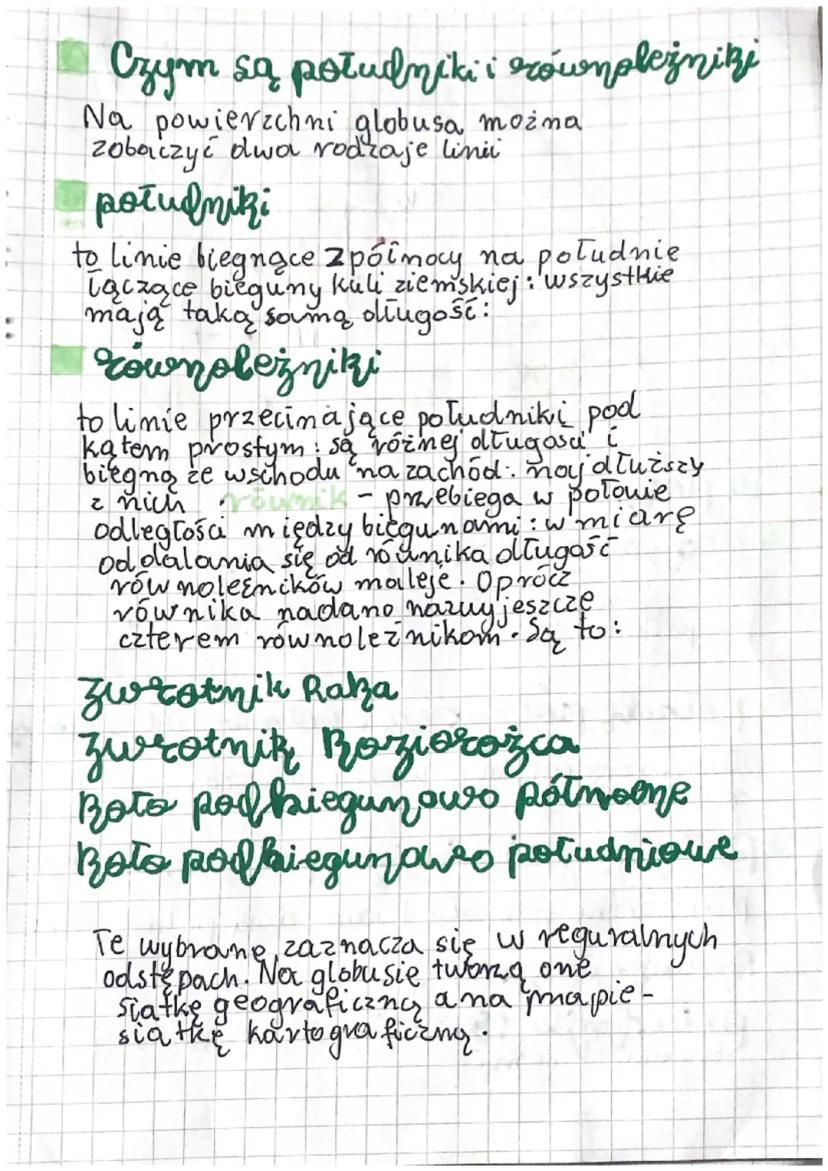 Czym są południki i równoleżniki
Na powierzchni globusa można
zobaczyć dwa rodzaje linii
południki
to linie biegnące z północy na południe
łączące bieguny kuli ziemskiej: wszystkie
mają taką samą długość:
równoleżniki
to linie przecinające południki pod
kątem prostym: są różnej długości i
biegną ze wschodu na zachód: najdłuższy
z nich równik - przebiega w połowie
odległości między biegunami: w miarę
oddalania się od równika długość
równoleżników maleje. Oprócz
równika nadano nazwy jeszcze
czterem równoleżnikom. Są to:
Zwrotnik Raka
Zwrotnik Koziorożca
Koło podbiegunowo północne
Koło podbiegunowo południowe
Te wybrane zaznacza się w reguralnych
odstępach. Na globusie tworzą one
siatkę geograficzną a na mapie -
siatkę kartograficzną.